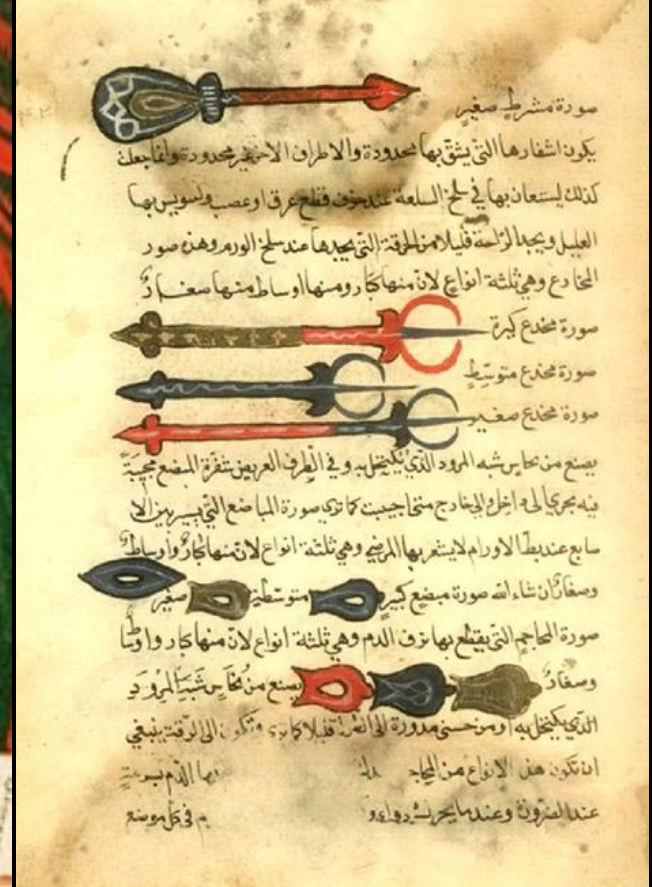 صورة مشرط صغير
يكون اشفارها التى يشق بها محدودة والاطراف الاخر غير محدودة وانما جعلت
كذلك ليستعان بها فى سلخ السلعة عند خوف قطع عرق او عصب ولسويس بها
العليل ويجد الراحة قليلا من الحرقة التى يجدها عند سلخ الورم وهذه صور
المخادع وهى ثلثة انواع لان منها كبار ومنها اوساط منها صغار
صورة مخدع كبيرة
صورة مخدع متوسط
صورة مخدع صغير
يصنع من نحاس شبه المرود الذى يكتحل به وفى الطرف العريض شفرة المبضع
فيه يجرى الى داخل والى خارج متى احببت كما ترى صورة المباضع التى يسر بين الا
صابع عند بط الاورام لا يشعر بها المرضى وهى ثلثة انواع لان منها كبار واوساط
وصغار ان شاء الله صورة مبضع كبير متوسط صغير
صورة المحاجم التى يقطع بها نزف الدم وهى ثلثة انواع لان منها كبار واوسا
وصغار يصنع من نحاس شبه المرود
الذى يكتحل به او من حسنى مدورة الى الطول قليلا كما ترى وتكون الى الرقة ينبغى
ان تكون هذه الانواع من المحاجم بها الدم بسرعة
عند الضرورة وعندما يحز فى كل موضع